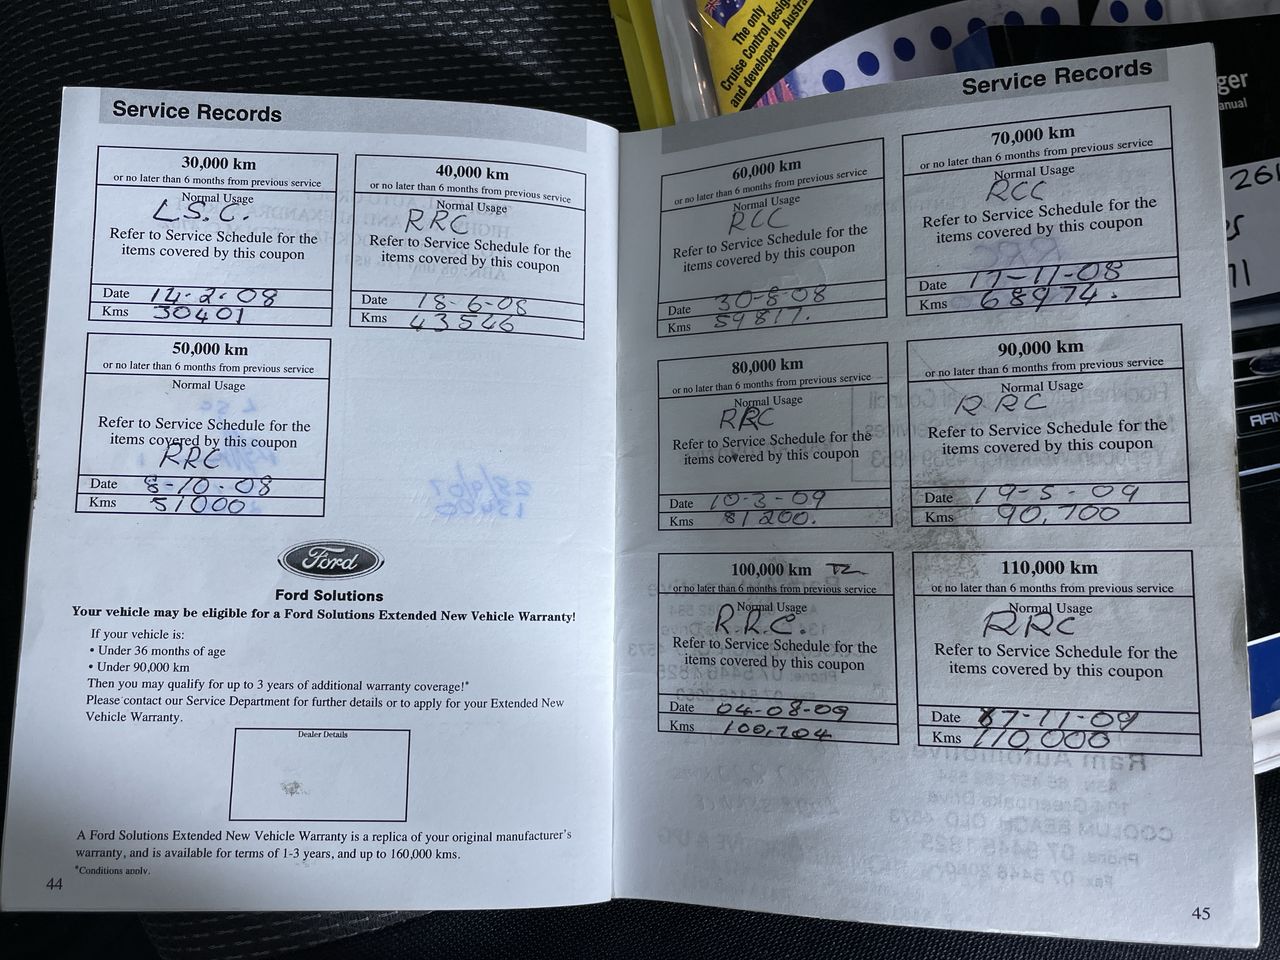 The only
Cruise Control
and developed in Austra
ger
anual
Service Records
30,000 km
or no later than 6 months from previous service
Normal Usage
L.S.C.
Refer to Service Schedule for the
items covered by this coupon
Date 14-2-08
Kms 30401
40,000 km
or no later than 6 months from previous service
Normal Usage
RRC
Refer to Service Schedule for the
items covered by this coupon
Date 18-6-08
Kms 43546
50,000 km
or no later than 6 months from previous service
Normal Usage
Refer to Service Schedule for the
items covered by this coupon
RRC
Date 8-10-08
Kms 51000
Ford
Ford Solutions
Your vehicle may be eligible for a Ford Solutions Extended New Vehicle Warranty!
If your vehicle is:
• Under 36 months of age
• Under 90,000 km
Then you may qualify for up to 3 years of additional warranty coverage!*
Please contact our Service Department for further details or to apply for your Extended New
Vehicle Warranty.
Dealer Details
A Ford Solutions Extended New Vehicle Warranty is a replica of your original manufacturer's
warranty, and is available for terms of 1-3 years, and up to 160,000 kms.
*Conditions apply.
44
Service Records
60,000 km
or no later than 6 months from previous service
Normal Usage
RCC
Refer to Service Schedule for the
items covered by this coupon
Date 30-8-08
Kms 59817.
70,000 km
or no later than 6 months from previous service
Normal Usage
RCC
Refer to Service Schedule for the
items covered by this coupon
Date 17-11-08
Kms 68974.
80,000 km
or no later than 6 months from previous service
Normal Usage
RRC
Refer to Service Schedule for the
items covered by this coupon
Date 10-3-09
Kms 81200.
90,000 km
or no later than 6 months from previous service
Normal Usage
RRC
Refer to Service Schedule for the
items covered by this coupon
Date 19-5-09
Kms 90,700
100,000 km
or no later than 6 months from previous service
Normal Usage
R.R.C.
Refer to Service Schedule for the
items covered by this coupon
Date 04-08-09
Kms 100,204
110,000 km
or no later than 6 months from previous service
Normal Usage
RRC
Refer to Service Schedule for the
items covered by this coupon
Date 17-11-09
Kms 110,000
45